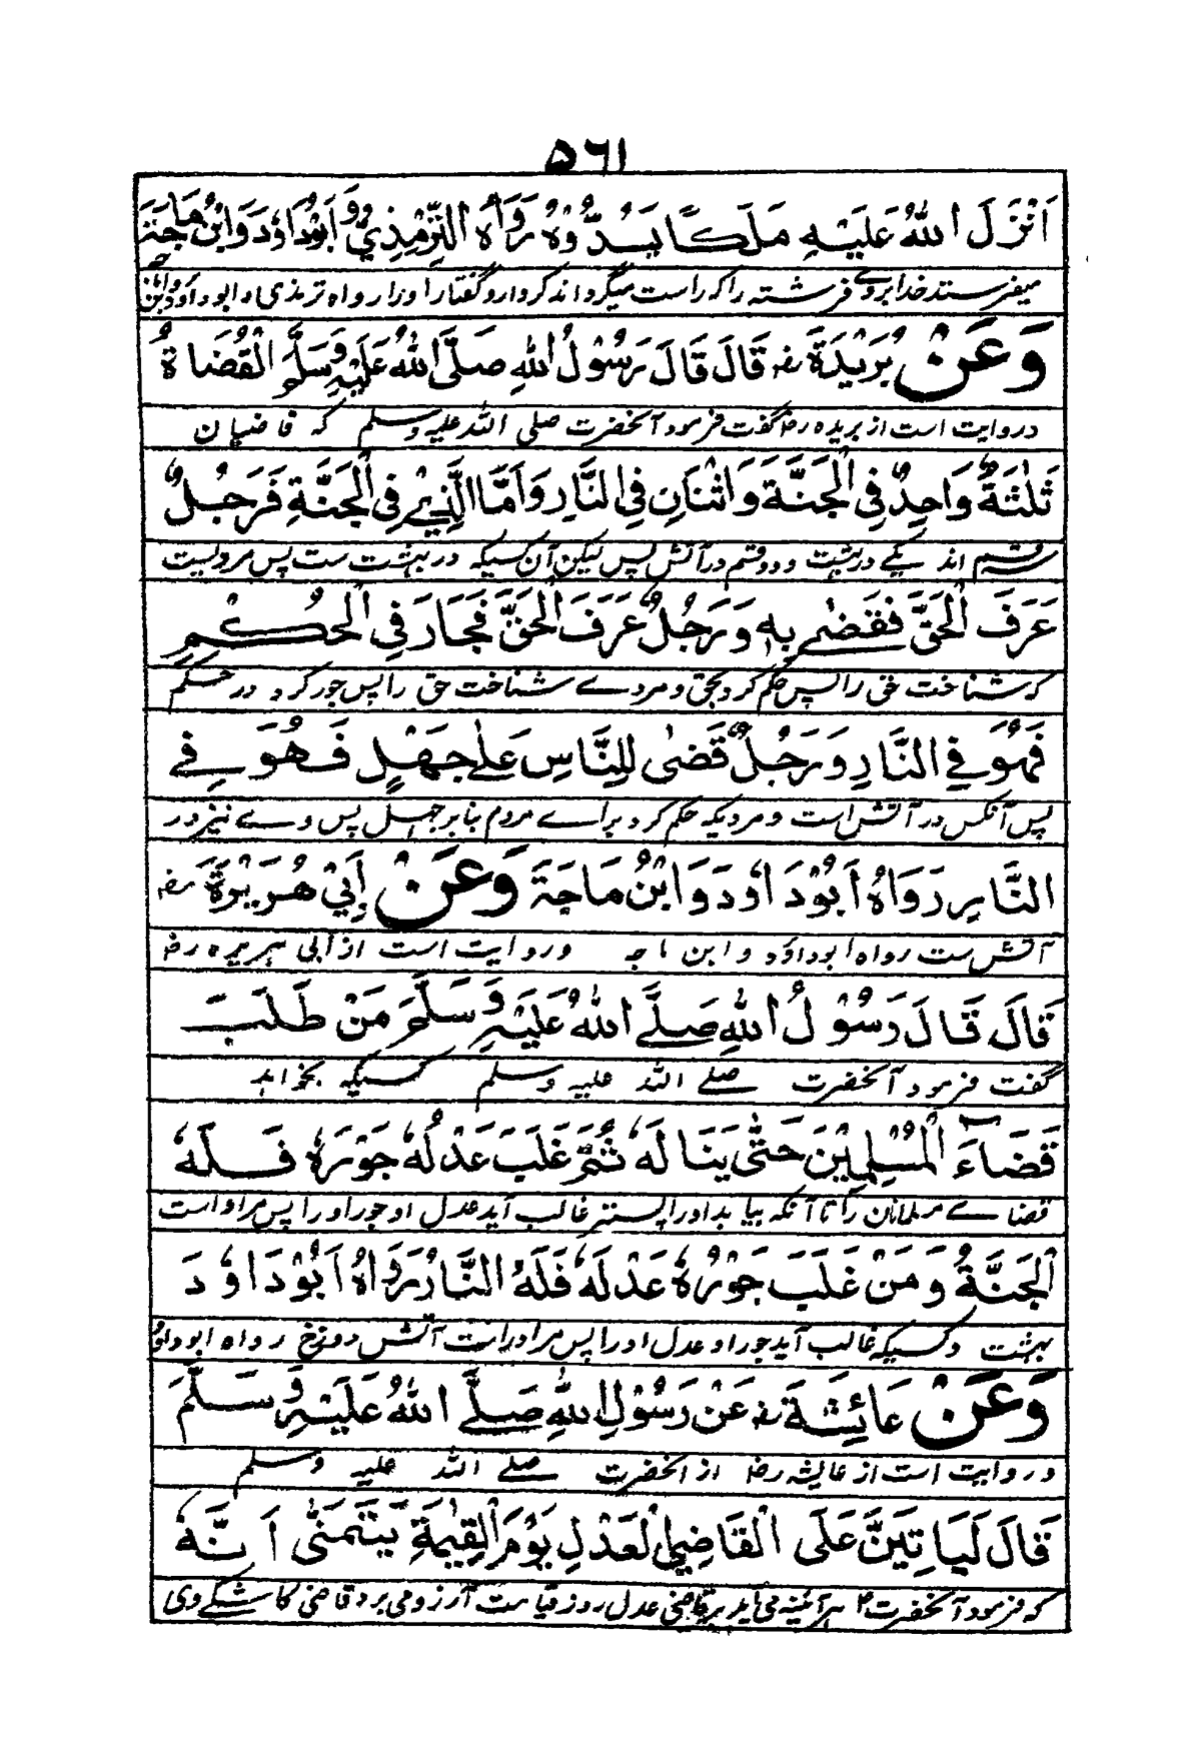 ۵۶۱
اَنْزَلَ اللهُ عَلَيْهِ مَلَكًا يُسَدِّدُهُ رَوَاهُ التِّرْمِذِيُّ وَاَبُوْدَاوٗدَ وَابْنُ مَاجَةَ
میفرستد خدا بروے فرشته را که راست میگرداند کردار و گفتار او را رواه ترمذی و ابو داؤد وابن
وَعَنْ بُرَيْدَةَ رض قَالَ قَالَ رَسُوْلُ اللهِ صَلَّى اللهُ عَلَيْهِ وَسَلَّمَ الْقُضَاةُ
و روایت است از بریده رض گفت فرمود آنحضرت صلی الله علیه وسلم که قاضیان
ثَلٰثَةٌ وَاحِدٌ فِى الْجَنَّةِ وَاثْنَانِ فِى النَّارِ وَاَمَّا الَّذِيْ فِى الْجَنَّةِ فَرَجُلٌ
سه قسم اند یکے در بهشت و دو قسم در آتش پس لیکن آن کسیکه در بهشت ست پس مردیست
عَرَفَ الْحَقَّ فَقَضٰى بِهٖ وَرَجُلٌ عَرَفَ الْحَقَّ فَجَارَ فِى الْحُكْمِ
که شناخت حق را پس حکم کرد بحق و مردے شناخت حق را پس جور کرد در حکم
فَهُوَ فِي النَّارِ وَرَجُلٌ قَضٰى لِلنَّاسِ عَلٰى جَهْلٍ فَهُوَ فِے
پس آنکس در آتش است و مردیکه حکم کرد براے مردم بنا بر جهل پس وے نیز در
النَّارِ رَوَاهُ اَبُوْدَاوٗدَ وَابْنُ مَاجَةَ وَعَنْ اَبِيْ هُرَيْرَةَ رض
آتش ست رواه ابوداؤد و ابن ماجه و روایت است از ابی هریره رض
قَالَ قَالَ رَسُوْلُ اللهِ صَلَّے اللهُ عَلَيْهِ وَسَلَّمَ مَنْ طَلَبَ
گفت فرمود آنحضرت صلے الله علیه وسلم کسیکه بخواهد
قَضَآءَ الْمُسْلِمِيْنَ حَتّٰى يَنَالَهٗ ثُمَّ غَلَبَ عَدْلُهٗ جَوْرَهٗ فَلَهُ
قضاے مسلمانان را تا آنکه بیابد او را پستر غالب آید عدل او جور او را پس مر او است
الْجَنَّةُ وَمَنْ غَلَبَ جَوْرُهٗ عَدْلَهٗ فَلَهُ النَّارُ رَوَاهُ اَبُوْدَاوٗدَ
بهشت و کسیکه غالب آید جور او عدل او را پس مر او راست آتش دوزخ رواه ابو داؤد
وَعَنْ عَائِشَةَ رض عَنْ رَسُوْلِ اللهِ صَلَّے اللهُ عَلَيْهِ وَسَلَّمَ
و روایت است از عائشه رض از آنحضرت صلے الله علیه وسلم
قَالَ لَيَاتِيَنَّ عَلَى الْقَاضِي الْعَدْلِ يَوْمَ الْقِيٰمَةِ يَتَمَنّٰى اَنَّهٗ
که فرمود آنحضرت ۲ هر آئینه می آید بر قاضی عدل روز قیامت آرزو می برد قاضی کاشکے وی